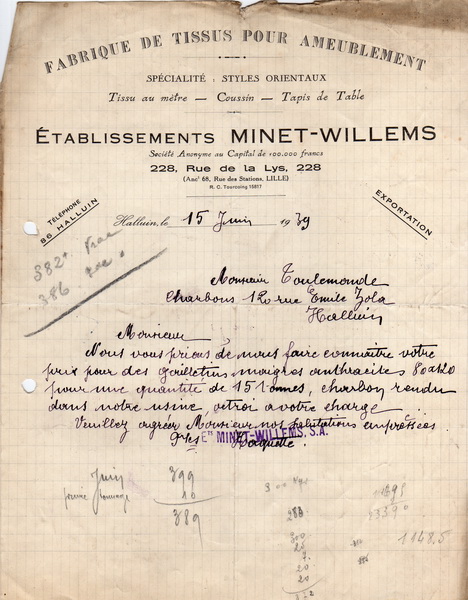 FABRIQUE DE TISSUS POUR AMEUBLEMENT
SPÉCIALITÉ : STYLES ORIENTAUX
Tissu au mètre — Coussin — Tapis de Table
ÉTABLISSEMENTS MINET-WILLEMS
Société Anonyme au Capital de 100.000 francs
228, Rue de la Lys, 228
(Anct 68, Rue des Stations, LILLE)
R. C. Tourcoing 15817
TÉLÉPHONE
86 HALLUIN
EXPORTATION
Halluin, le 15 Juin 1939
382
386
Monsieur Toulemonde
Charbons 12 rue Emile Zola
Halluin
Monsieur
Nous vous prions de nous faire connaître votre
prix pour des gailletins maigres anthracites 80x120
pour une quantité de 15 tonnes, charbon rendu
dans notre usine, octroi a votre charge
Veuillez agréer Monsieur nos salutations empressées
Ets MINET-WILLEMS, S.A.
Juin 399
10
389
300
288
300
20
20
11485